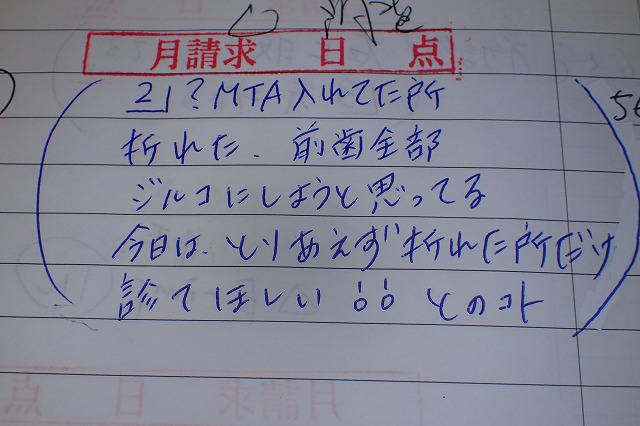 月請求 日 点
21? MTA入れてた所
折れた、前歯全部
ジルコにしようと思ってる
今日は、とりあえず折れた所だけ
診てほしい とのコト